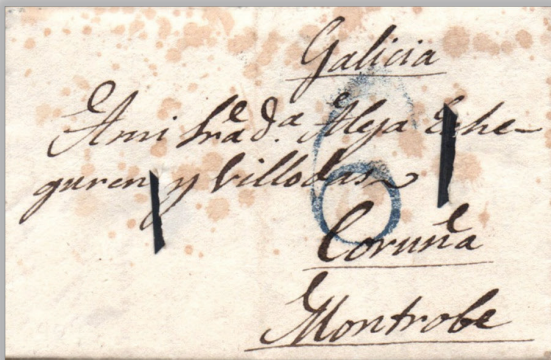 Galicia
A mi Sra. da. Aleja Eche-
guren y Villodas
6
Coruña
Montrobe